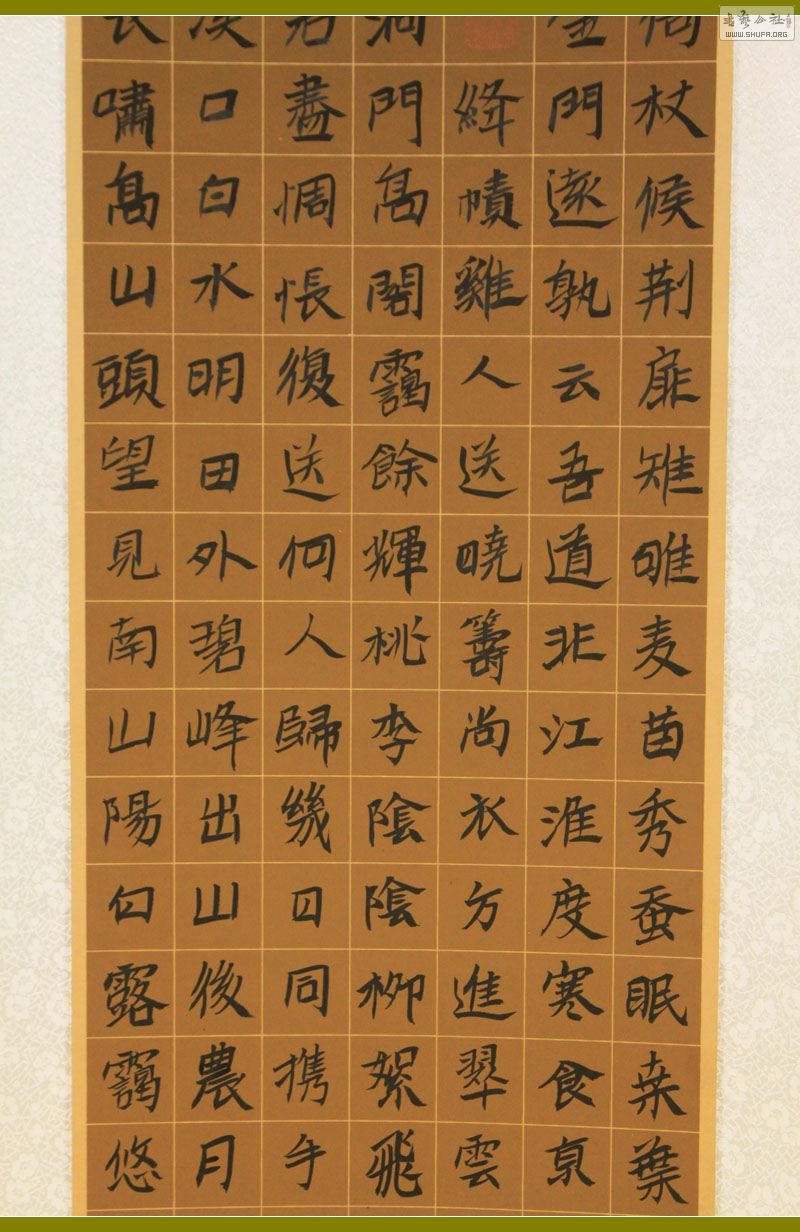 杖候荆扉雉雊麦苗秀蚕眠桑葉
金門遠孰云吾道非江淮度寒食京
絳幘雞人送曉籌尚衣方進翠雲
洞門高閣靄餘輝桃李陰陰柳絮飛
盡惆悵復送何人歸幾日同携手
溪口白水明田外碧峰出山後農月
長嘯高山頭望見南山陽白露靄悠
WWW.SHUFA.ORG